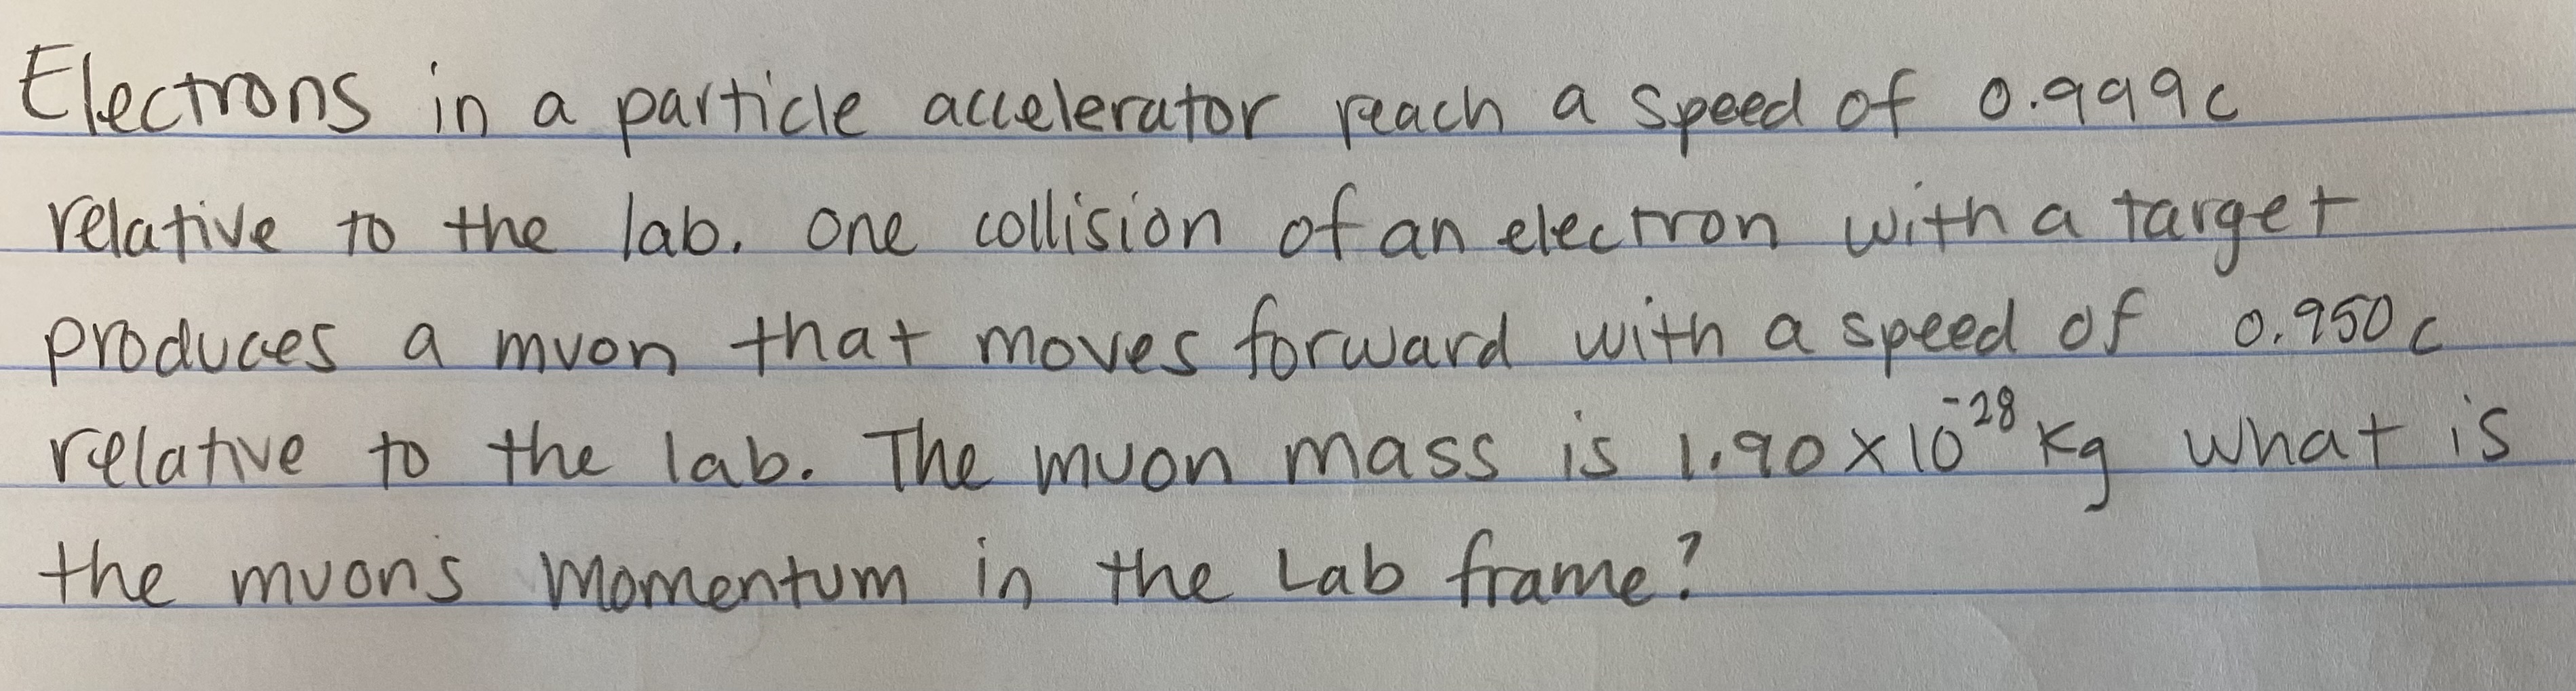 Electrons in a particle accelerator reach a speed of 0.999c
relative to the lab. One collision of an electron with a target
produces a muon that moves forward with a speed of 0.950c
relative to the lab. The muon mass is 1.90 × 10⁻²⁸ kg what is
the muon's momentum in the Lab frame?